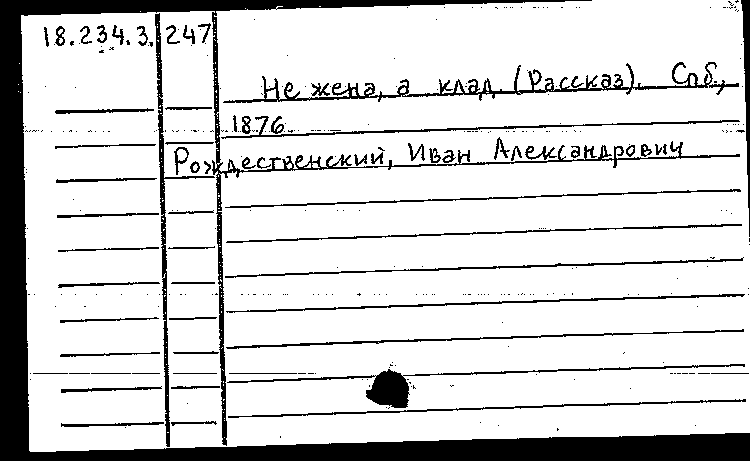 18.234.3. 247
Не жена, а клад. (Рассказ). Спб.,
1876.
Рождественский, Иван Александрович